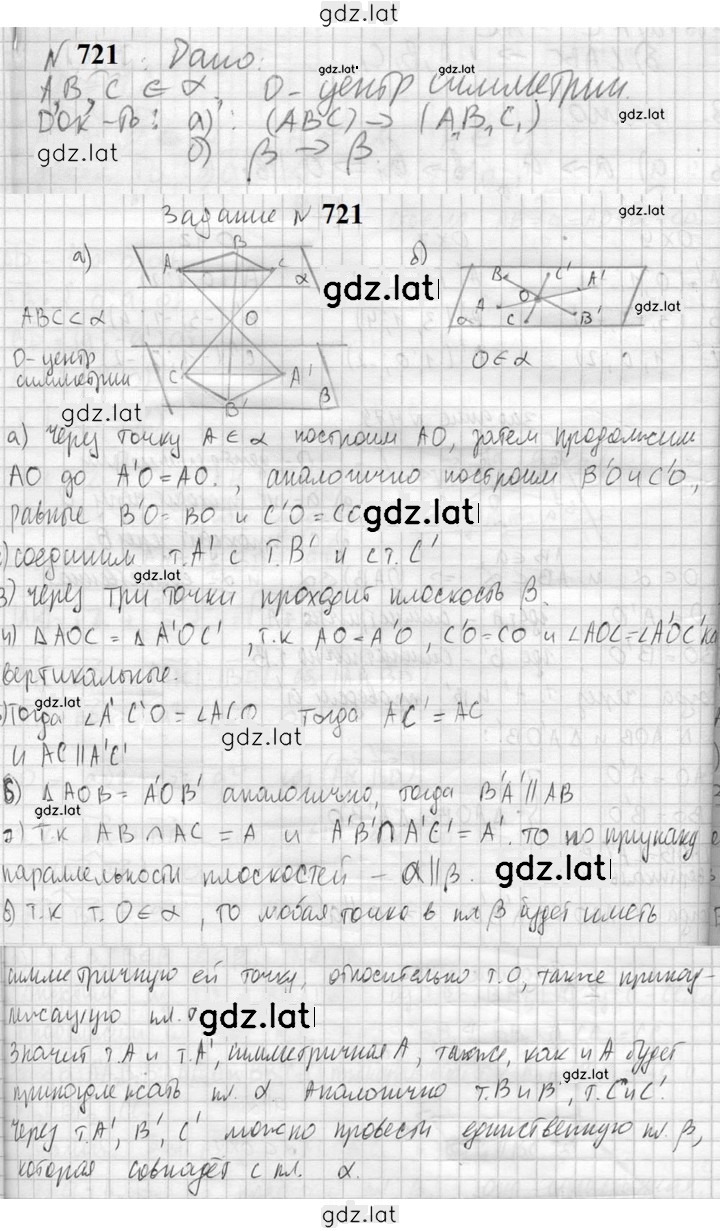 gdz.lat
N 721. Дано:
gdz.lat gdz.lat
A, B, C ∈ α. O - центр симметрии.
Док-ть: а) (ABC) → (A₁B₁C₁) gdz.lat
gdz.lat б) β → β
Задание N 721 gdz.lat
а) A B C α б) B C' A' O A C B' α
gdz.lat
gdz.lat
ABC ⊂ α O
O - центр симметрии C' A' B' β O ∈ α
gdz.lat
а) Через точку A ∈ α построим AO, затем продолжим
AO до A'O = AO., аналогично построим B'O и C'O,
равные B'O = BO и C'O = CO gdz.lat
) соединим т.A' с т.B' и с т.C'
gdz.lat
3) Через три точки проходит плоскость β.
4) ΔAOC = ΔA'OC', т.к AO = A'O, C'O = CO и ∠AOC = ∠A'OC' ка
вертикальные.
gdz.lat
)Тогда ∠A'C'O = ∠ACO тогда A'C' = AC
gdz.lat
и AC ∥ A'C'
6) ΔAOB = A'OB' аналогично, тогда B'A' ∥ AB
gdz.lat
) т.к AB ∩ AC = A и A'B' ∩ A'C' = A'. то по признаку
параллельности плоскостей - α ∥ β. gdz.lat
б) т.к т. O ∈ α, то любая точка в пл β будет иметь
симметричную ей точку, относительно т.O, также принад-
лежащую пл. gdz.lat
Значит т.A и т.A', симметричная A, также, как и A будет
gdz.lat
принадлежать пл. α. Аналогично т.B и B', т.C и C'.
Через т.A', B', C' можно провести единственную пл. β,
которая совпадёт с пл. α.
gdz.lat